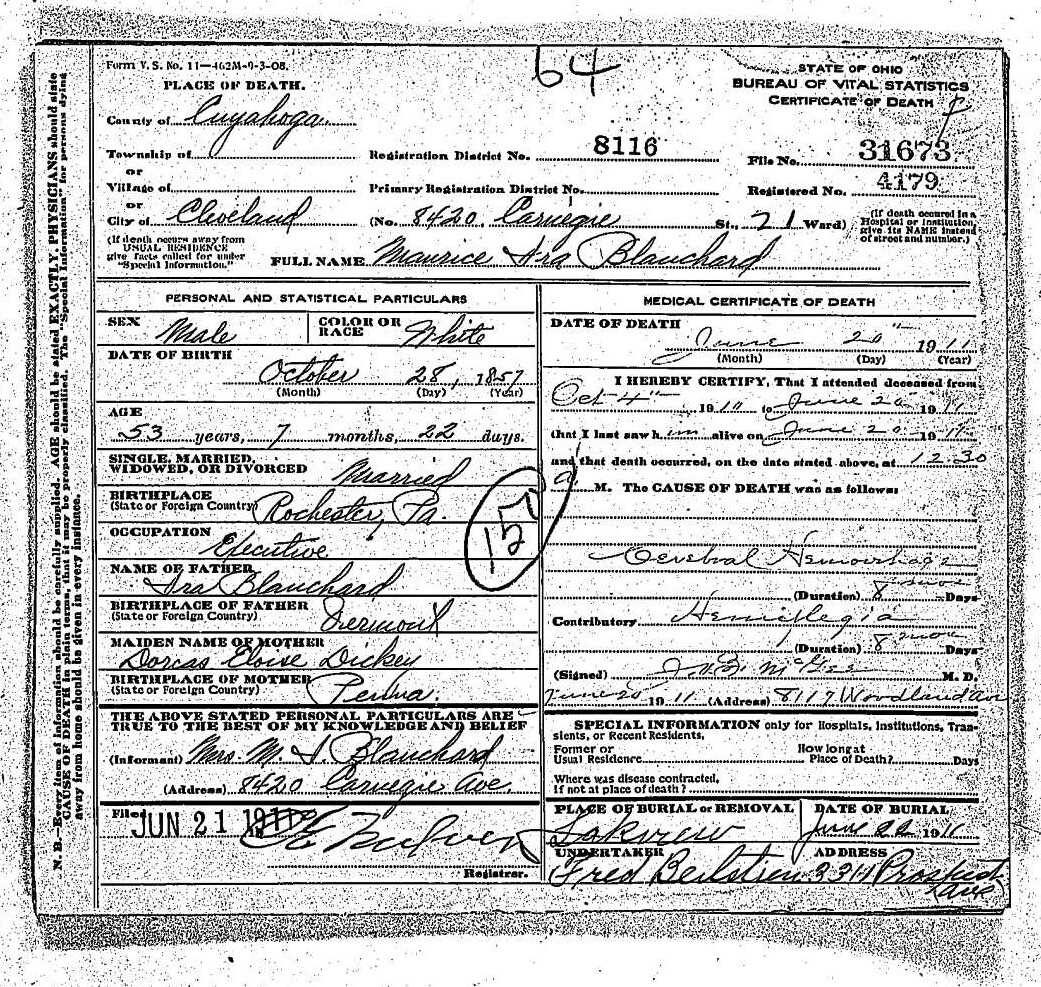 64
Form V. S. No. 11—462M-9-3-08.
STATE OF OHIO
BUREAU OF VITAL STATISTICS
CERTIFICATE OF DEATH
PLACE OF DEATH.
County of Cuyahoga
Township of
or
Village of
or
City of Cleveland
(If death occurs away from USUAL RESIDENCE give facts called for under "Special Information.")
Registration District No. 8116
File No. 31673
Primary Registration District No.
Registered No. 4179
(No. 8420 Carnegie St., 21 Ward)
(If death occured in a Hospital or Institution, give its NAME instead of street and number.)
FULL NAME Maurice Ira Blanchard
PERSONAL AND STATISTICAL PARTICULARS
SEX Male
COLOR OR RACE White
DATE OF BIRTH
October 28, 1857
(Month) (Day) (Year)
AGE
53 years, 7 months, 22 days.
SINGLE, MARRIED, WIDOWED, OR DIVORCED Married
BIRTHPLACE
(State or Foreign Country) Rochester, Pa.
OCCUPATION
Executive
NAME OF FATHER
Ira Blanchard
BIRTHPLACE OF FATHER
(State or Foreign Country) Vermont
MAIDEN NAME OF MOTHER
Dorcas Eloise Dickey
BIRTHPLACE OF MOTHER
(State or Foreign Country) Penna.
THE ABOVE STATED PERSONAL PARTICULARS ARE
TRUE TO THE BEST OF MY KNOWLEDGE AND BELIEF
(Informant) Mrs. M. I. Blanchard
(Address) 8420 Carnegie Ave.
Filed JUN 21 1911
Registrar.
MEDICAL CERTIFICATE OF DEATH
DATE OF DEATH
June 20" 1911
(Month) (Day) (Year)
I HEREBY CERTIFY, That I attended deceased from
Oct 4" 1910 to June 20" 1911
that I last saw him alive on June 20 1911
and that death occurred, on the date stated above, at 12.30
a. M. The CAUSE OF DEATH was as follows:
Cerebral Hemorrhage
8 mos
(Duration) Days
Contributory Hemiplegia
8 mos
(Duration) Days
(Signed) M. D.
June 20 1911 (Address) 8117 Woodland Av
SPECIAL INFORMATION only for Hospitals, Institutions, Transients, or Recent Residents.
Former or Usual Residence
How long at Place of Death? Days
Where was disease contracted,
If not at place of death?
PLACE OF BURIAL or REMOVAL
Lakeview
DATE OF BURIAL
June 22 1911
UNDERTAKER
Fred Beilstein
ADDRESS
3311 Prospect
Ave
N. B.—Every item of information should be carefully supplied. AGE should be stated EXACTLY. PHYSICIANS should state
CAUSE OF DEATH in plain terms, that it may be properly classified. The "Special Information" for persons dying
away from home should be given in every instance.